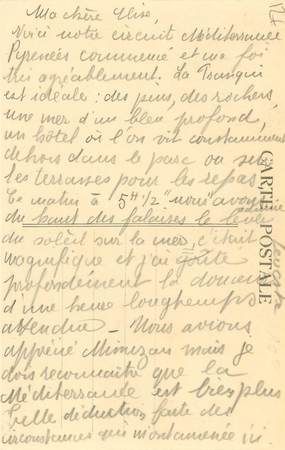 Ma chère Elise,
Voici notre circuit Méditerranée
Pyrenées commencé et ma foi
très agréablement. La
est idéale : des pins, des rochers,
une mer d'un bleu profond,
un hôtel où l'on vit constamment
dehors dans le parc ou sur
les terrasses pour les repas.
Ce matin à 5H 1/2 nous avons
du haut des falaises le lever
du soleil sur la mer, c'était
magnifique et j'ai goûté
profondément la douceur
d'une heure longtemps
attendue - Nous avions
apprécié Mimizan mais je
dois reconnaître que la
Méditerranée est bien plus
belle déduction faite des
circonstances qui m'ont amenée ici.
CARTE POSTALE